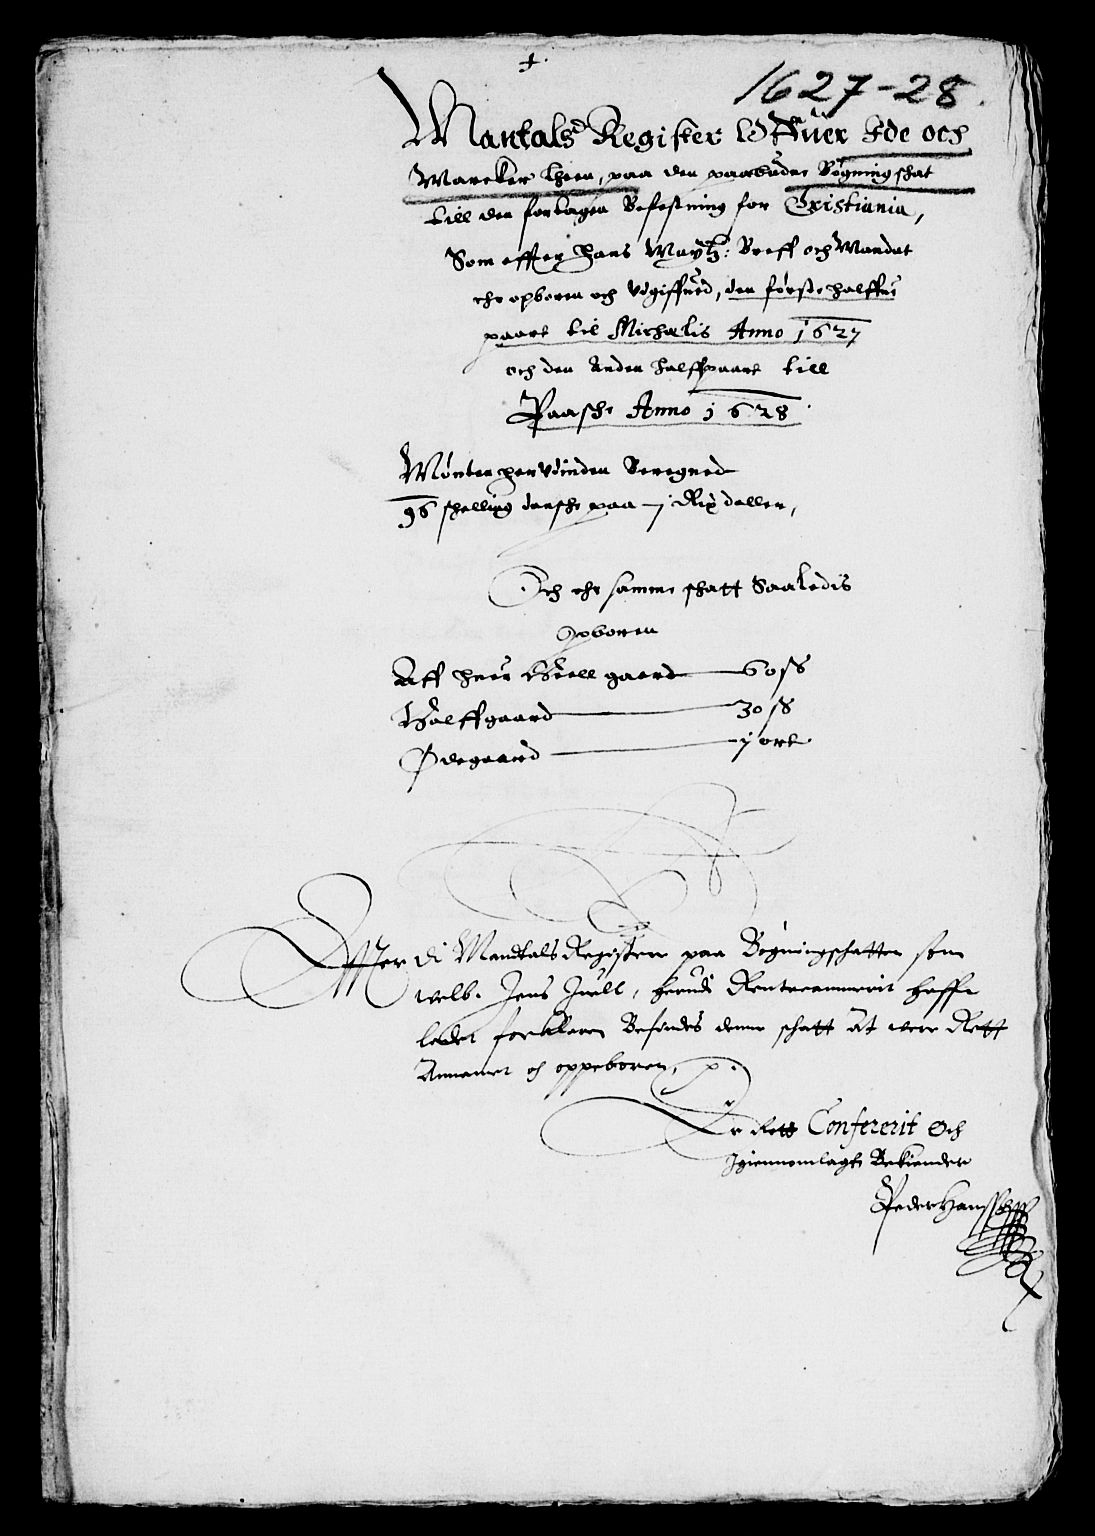 1627-28.
Mantals Register Offuer Ide och
Marcker Lheen, paa den paabudne Bögningschat
till den fortagen Befestning for Christiania,
Som effter Hans Maytz: Breff och Mandat
ehr opboren och vdgiffued, den første halffue
paart til Michaelis Anno 1627
och den Anden halffpaart till
Paasche Anno 1628
Mønten herudinden Beregned
96 schelling dansche paa – j Rix daller,
Och ehr samme schatt Saaledis
opboren
Aff huer Heell gaard 60 ss
Halffgaard 30 ss
Ødegaard j ort
Effter di Mandtals Registere paa Bögningschatten som
welb. Jens Juell, herudi Renteammerit haffr
ladet forklare Befindes denne schatt at were Rett
Annamet och oppeboren,
Er Rett Confererit Och
Igiennomlagt Bekiender
Peder Hanssen